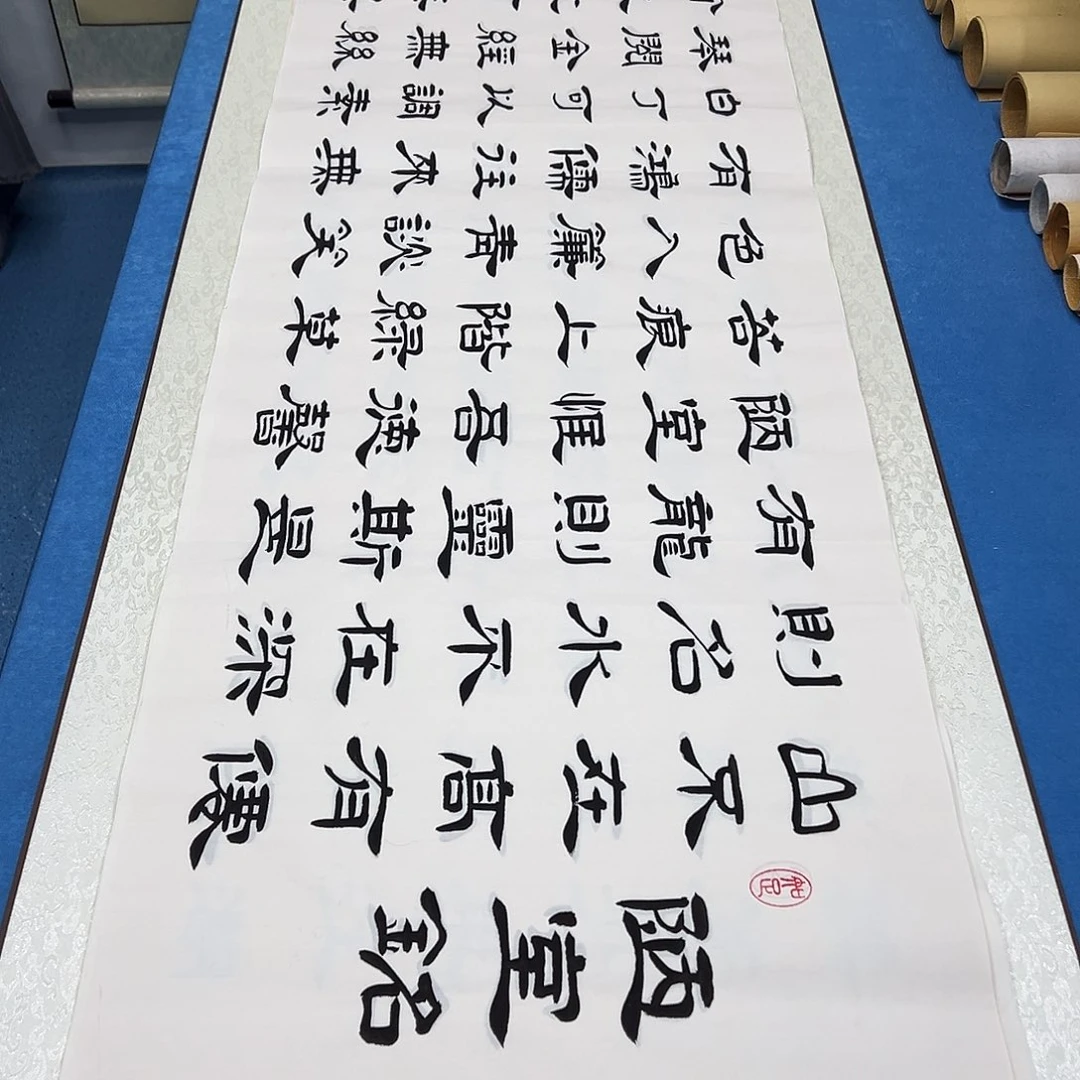 陋室銘
山不在高有僊
則名水不在深
有龍則靈斯是
陋室惟吾德馨
苔痕上階綠草
色入簾青談笑
有鴻儒往來無
白丁可以調素
琴閱金經無絲